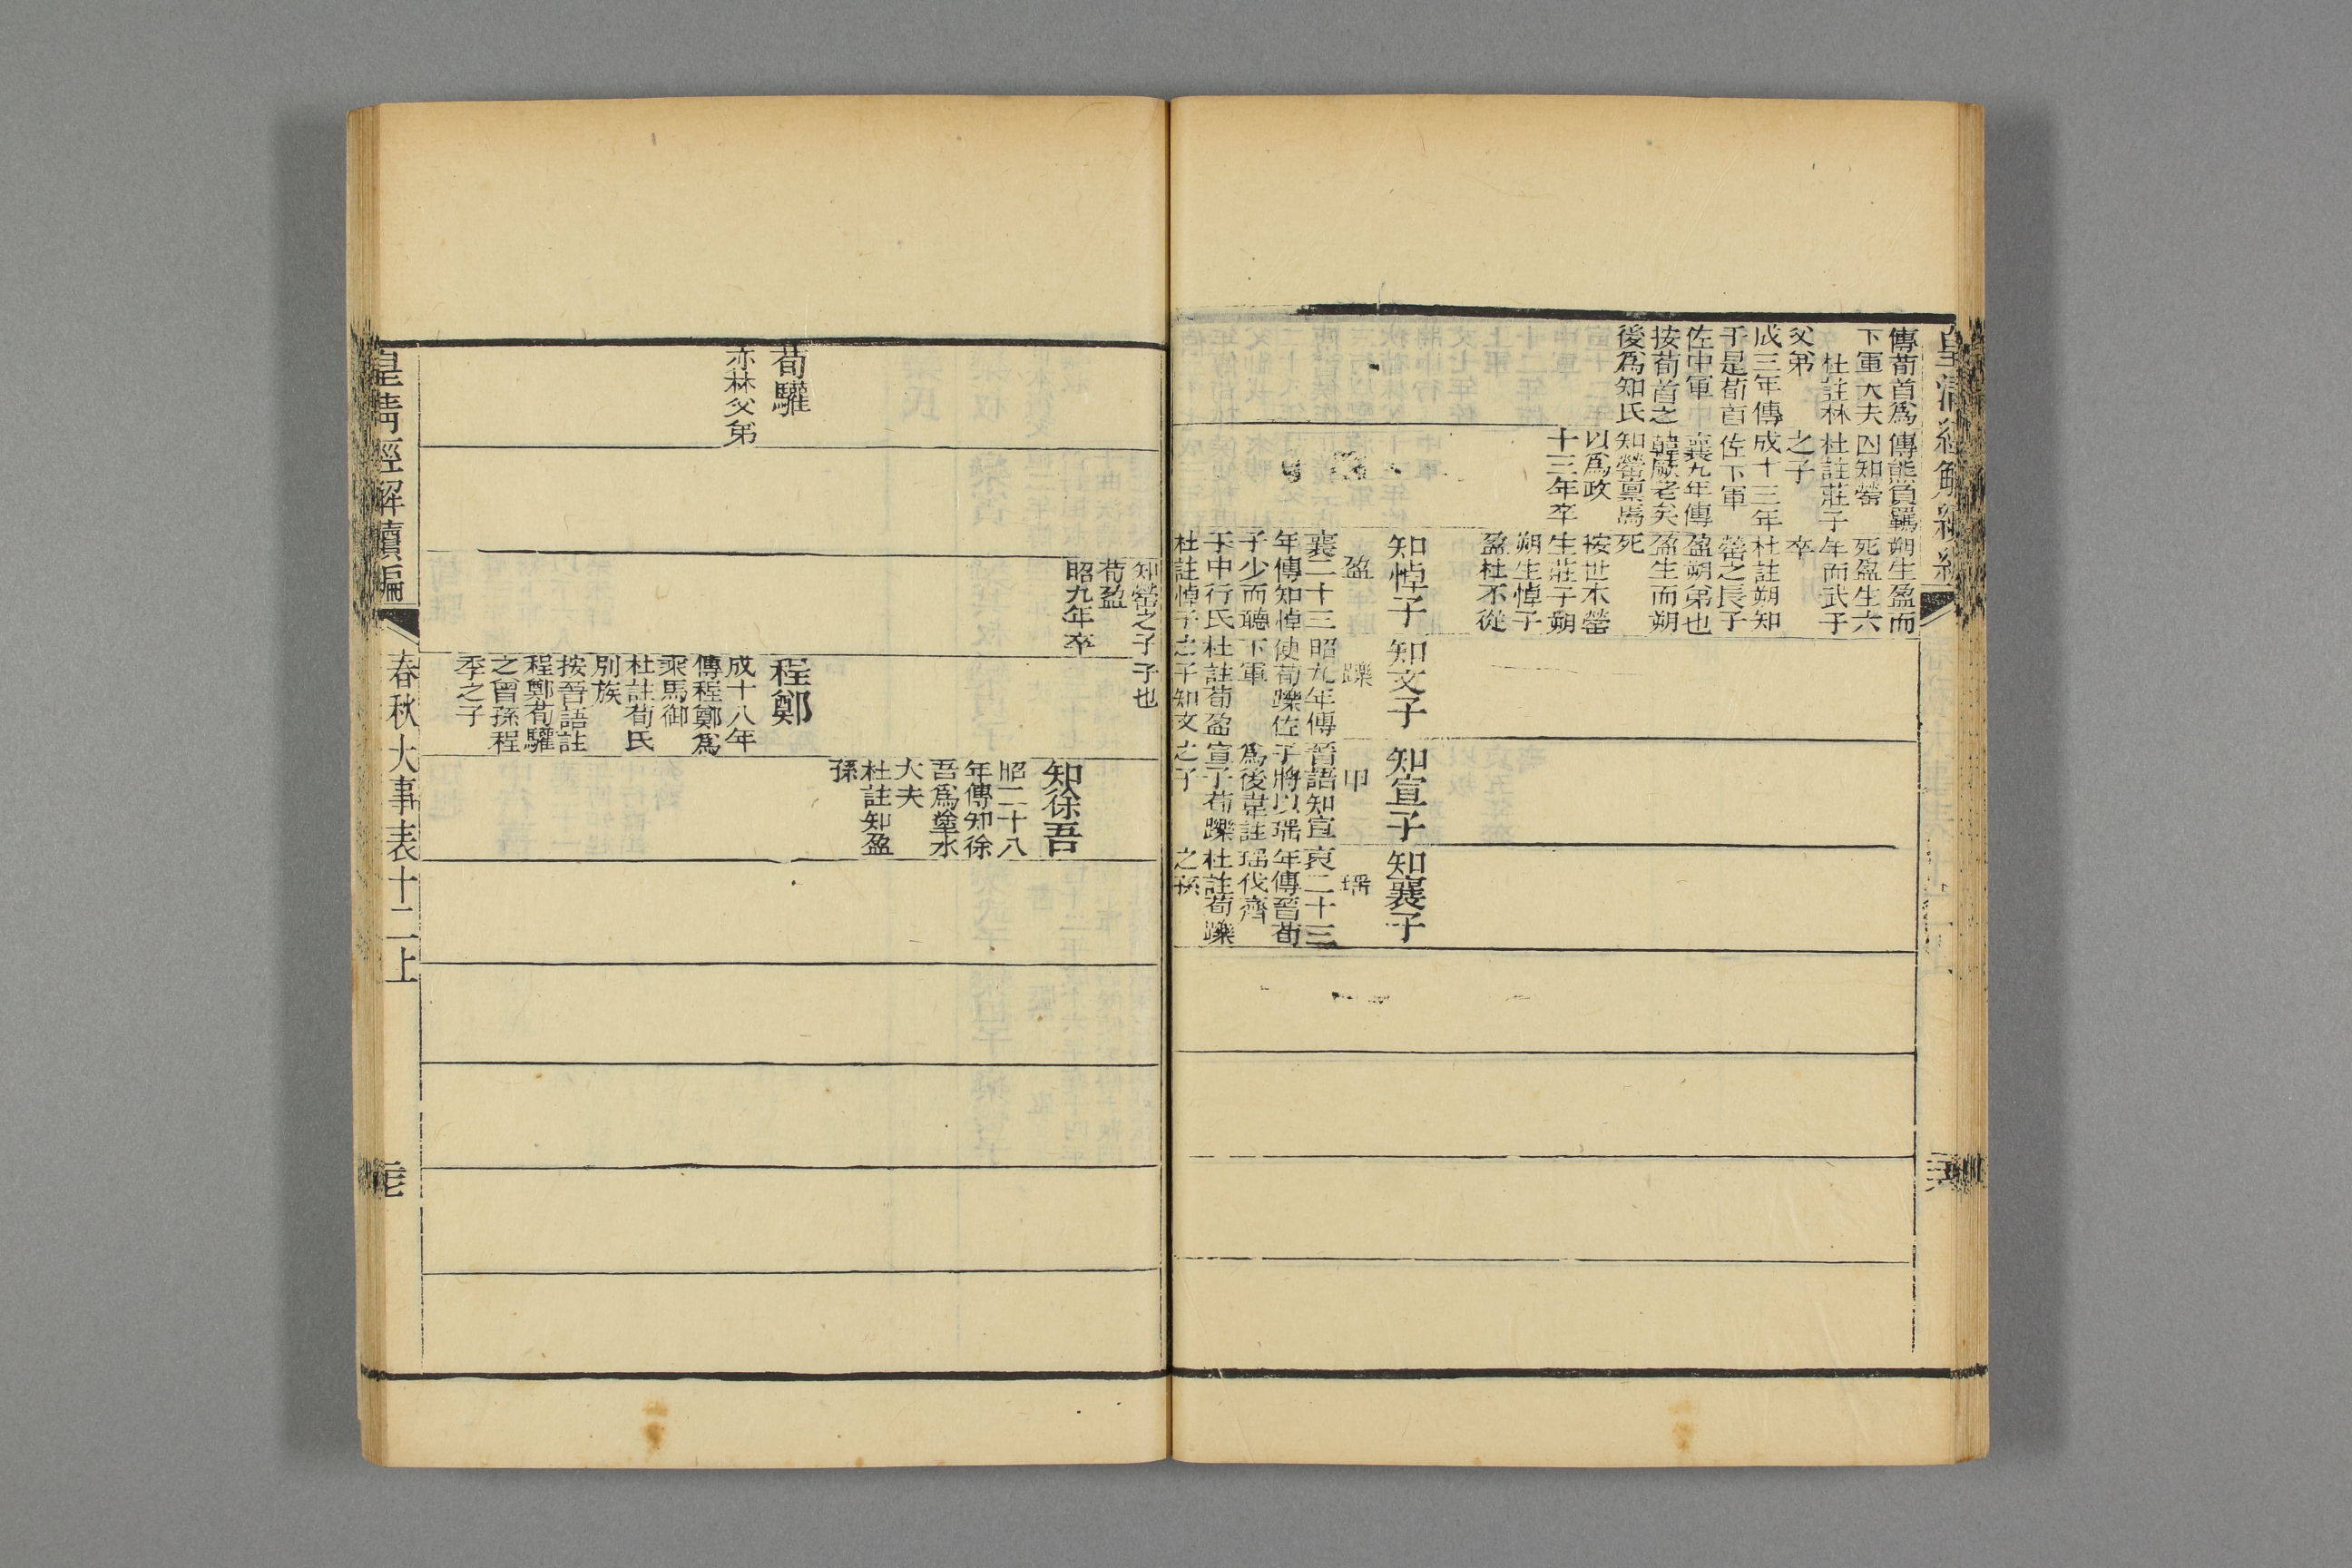 皇清經解續編
傳荀首為
下軍大夫
杜註林
父弟
成三年傳
于是荀首
佐中軍
按荀首之
後為知氏
傳能負羈
囚知罃
杜註莊子
之子
成十三年
佐下軍
襄九年傳
韓厥老矣
知罃稟焉
以為政
十三年卒
朔生盈而
死盈生六
年而武子
卒
杜註朔知
罃之長子
盈朔弟也
盈生而朔
死
按世本罃
生莊子朔
朔生悼子
盈杜不從
知悼子
盈
襄二十三
年傳知悼
子少而聽
于中行氏
杜註悼子
知文子
躒
昭九年傳
使荀躒佐
下軍
杜註荀盈
之子知文
知宣子
甲
晉語知宣
子將以瑤
為後韋註
宣子荀躒
之子
知襄子
瑤
哀二十三
年傳晉荀
瑤伐齊
杜註荀躒
之孫
荀驩
亦林父弟
知罃之子
荀盈
昭九年卒
子也
程鄭
成十八年
傳程鄭為
乘馬御
杜註荀氏
別族
按晉語註
程鄭荀驩
之曾孫程
季之子
知徐吾
昭二十八
年傳知徐
吾為塗水
大夫
杜註知盈
孫
皇清經解續編
春秋大事表十二上